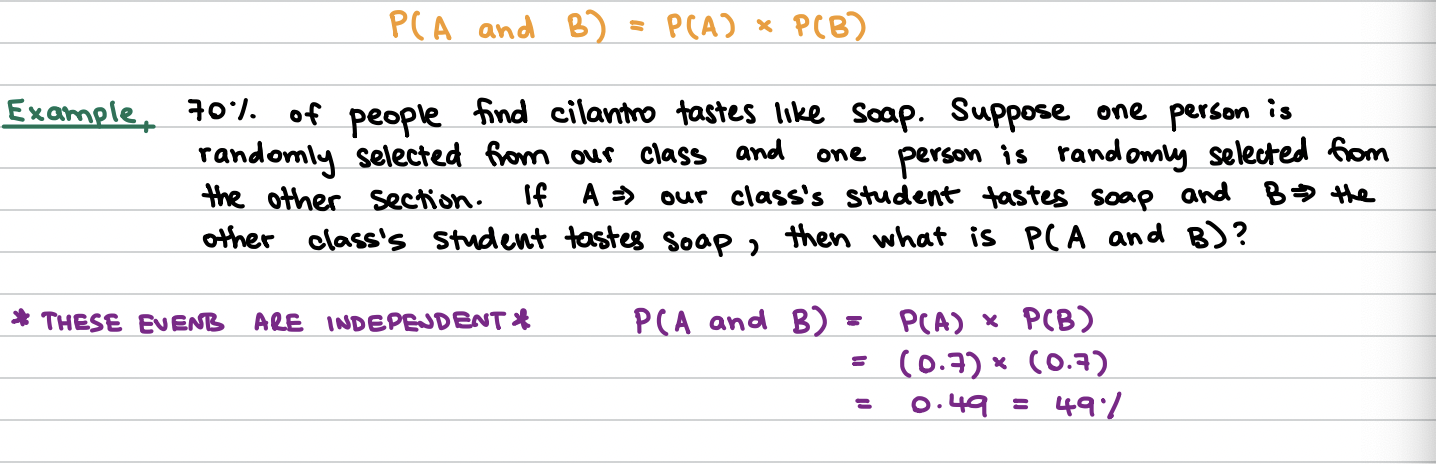 P(A and B) = P(A) × P(B)
Example, 70% of people find cilantro tastes like soap. Suppose one person is
randomly selected from our class and one person is randomly selected from
the other section. If A ⇒ our class's student tastes soap and B ⇒ the
other class's student tastes soap, then what is P(A and B)?
* THESE EVENTS ARE INDEPENDENT * P(A and B) = P(A) × P(B)
= (0.7) × (0.7)
= 0.49 = 49%